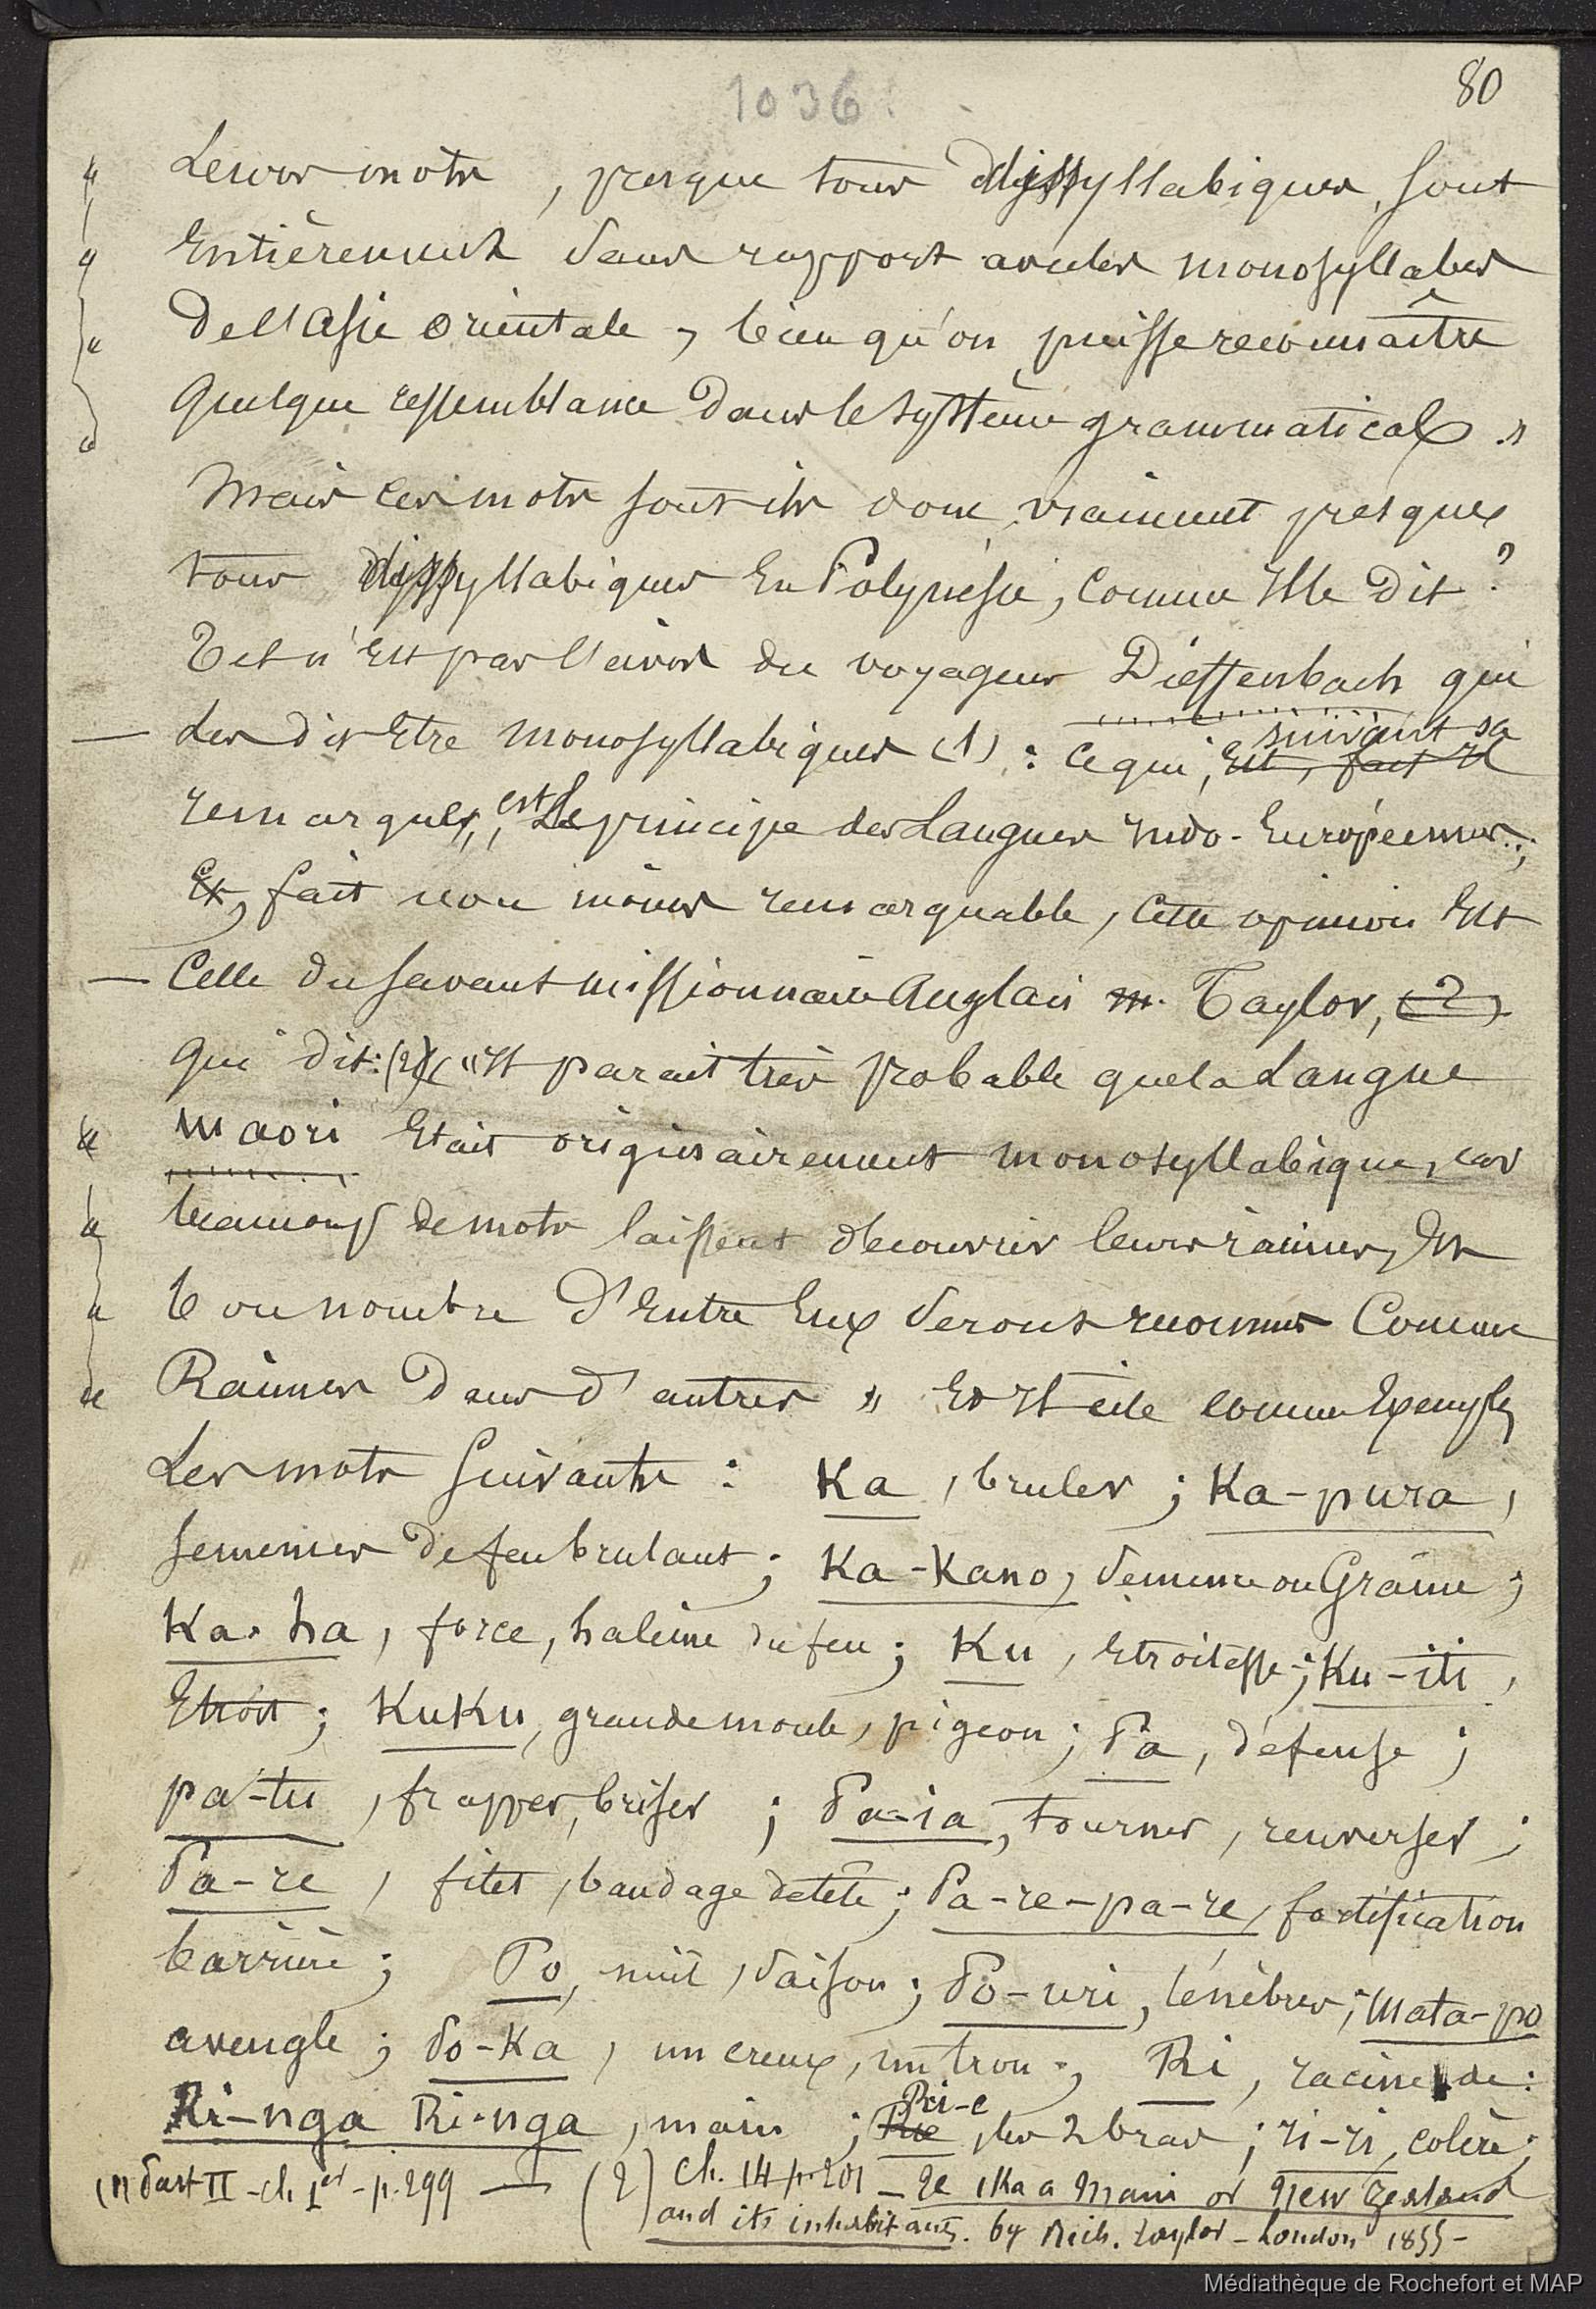 1036.
80
" Leurs mots, presque tous dissyllabiques, sont
" Entièrement sans rapport avec les monosyllabes
" De l'Asie Orientale, bien qu'on puisse reconnaître
" quelque ressemblance dans le système grammatical."
Mais ces mots sont-ils donc vraiment presque
tous dissyllabiques En Polynésie, Comme Il le Dit ?
Tel n'Est pas l'avis du voyageur Dieffenbach qui
— Les dit Etre monosyllabiques (1) : Ce qui, Est, fait Il suivant sa
remarque, est Le principe des Langues Indo-Européennes ;
Et, fait non moins remarquable, Cette opinion Est
— Celle du savant missionnaire Anglais M. Taylor, (2)
qui dit : (2) "Il parait très probable que la Langue
" maori Etait originairement monosyllabique, car
" beaucoup de mots laissent découvrir leurs racines, Et
" bon nombre d'Entre Eux seront reconnus Comme
" Racines Dans d'autres " Et Il cite comme Exemples
Les mots suivants : Ka, bruler ; Ka-pura,
semences de feu brulant ; Ka-Kano, semence ou Graine ;
Ka-ha, force, haleine du feu ; Ku, Etroitesse ; Ku-iti,
Etroit ; KuKu, grande moule, pigeon ; Pa, défense ;
pa-tu, frapper, briser ; Pa-ia, tourner, renverser ;
Pa-re, filet, bandage de tête ; Pa-re-pa-re, fortification
barrière ; Po, nuit, saison ; Po-uri, ténèbres ; Mata-po
aveugle ; Po-Ka, un creux, un trou ; Ri, racine de :
Ri-nga Ri-nga, main ; Rie Ri-e, les 2 bras ; ri-ri, colère ;
(1) Part II - ch. 1er - p. 299 — (2) Ch. 14 p. 201 - Te Ika a Maui or New Zealand
and its inhabitants. by Rich. Taylor - London 1855 -
Médiathèque de Rochefort et MAP